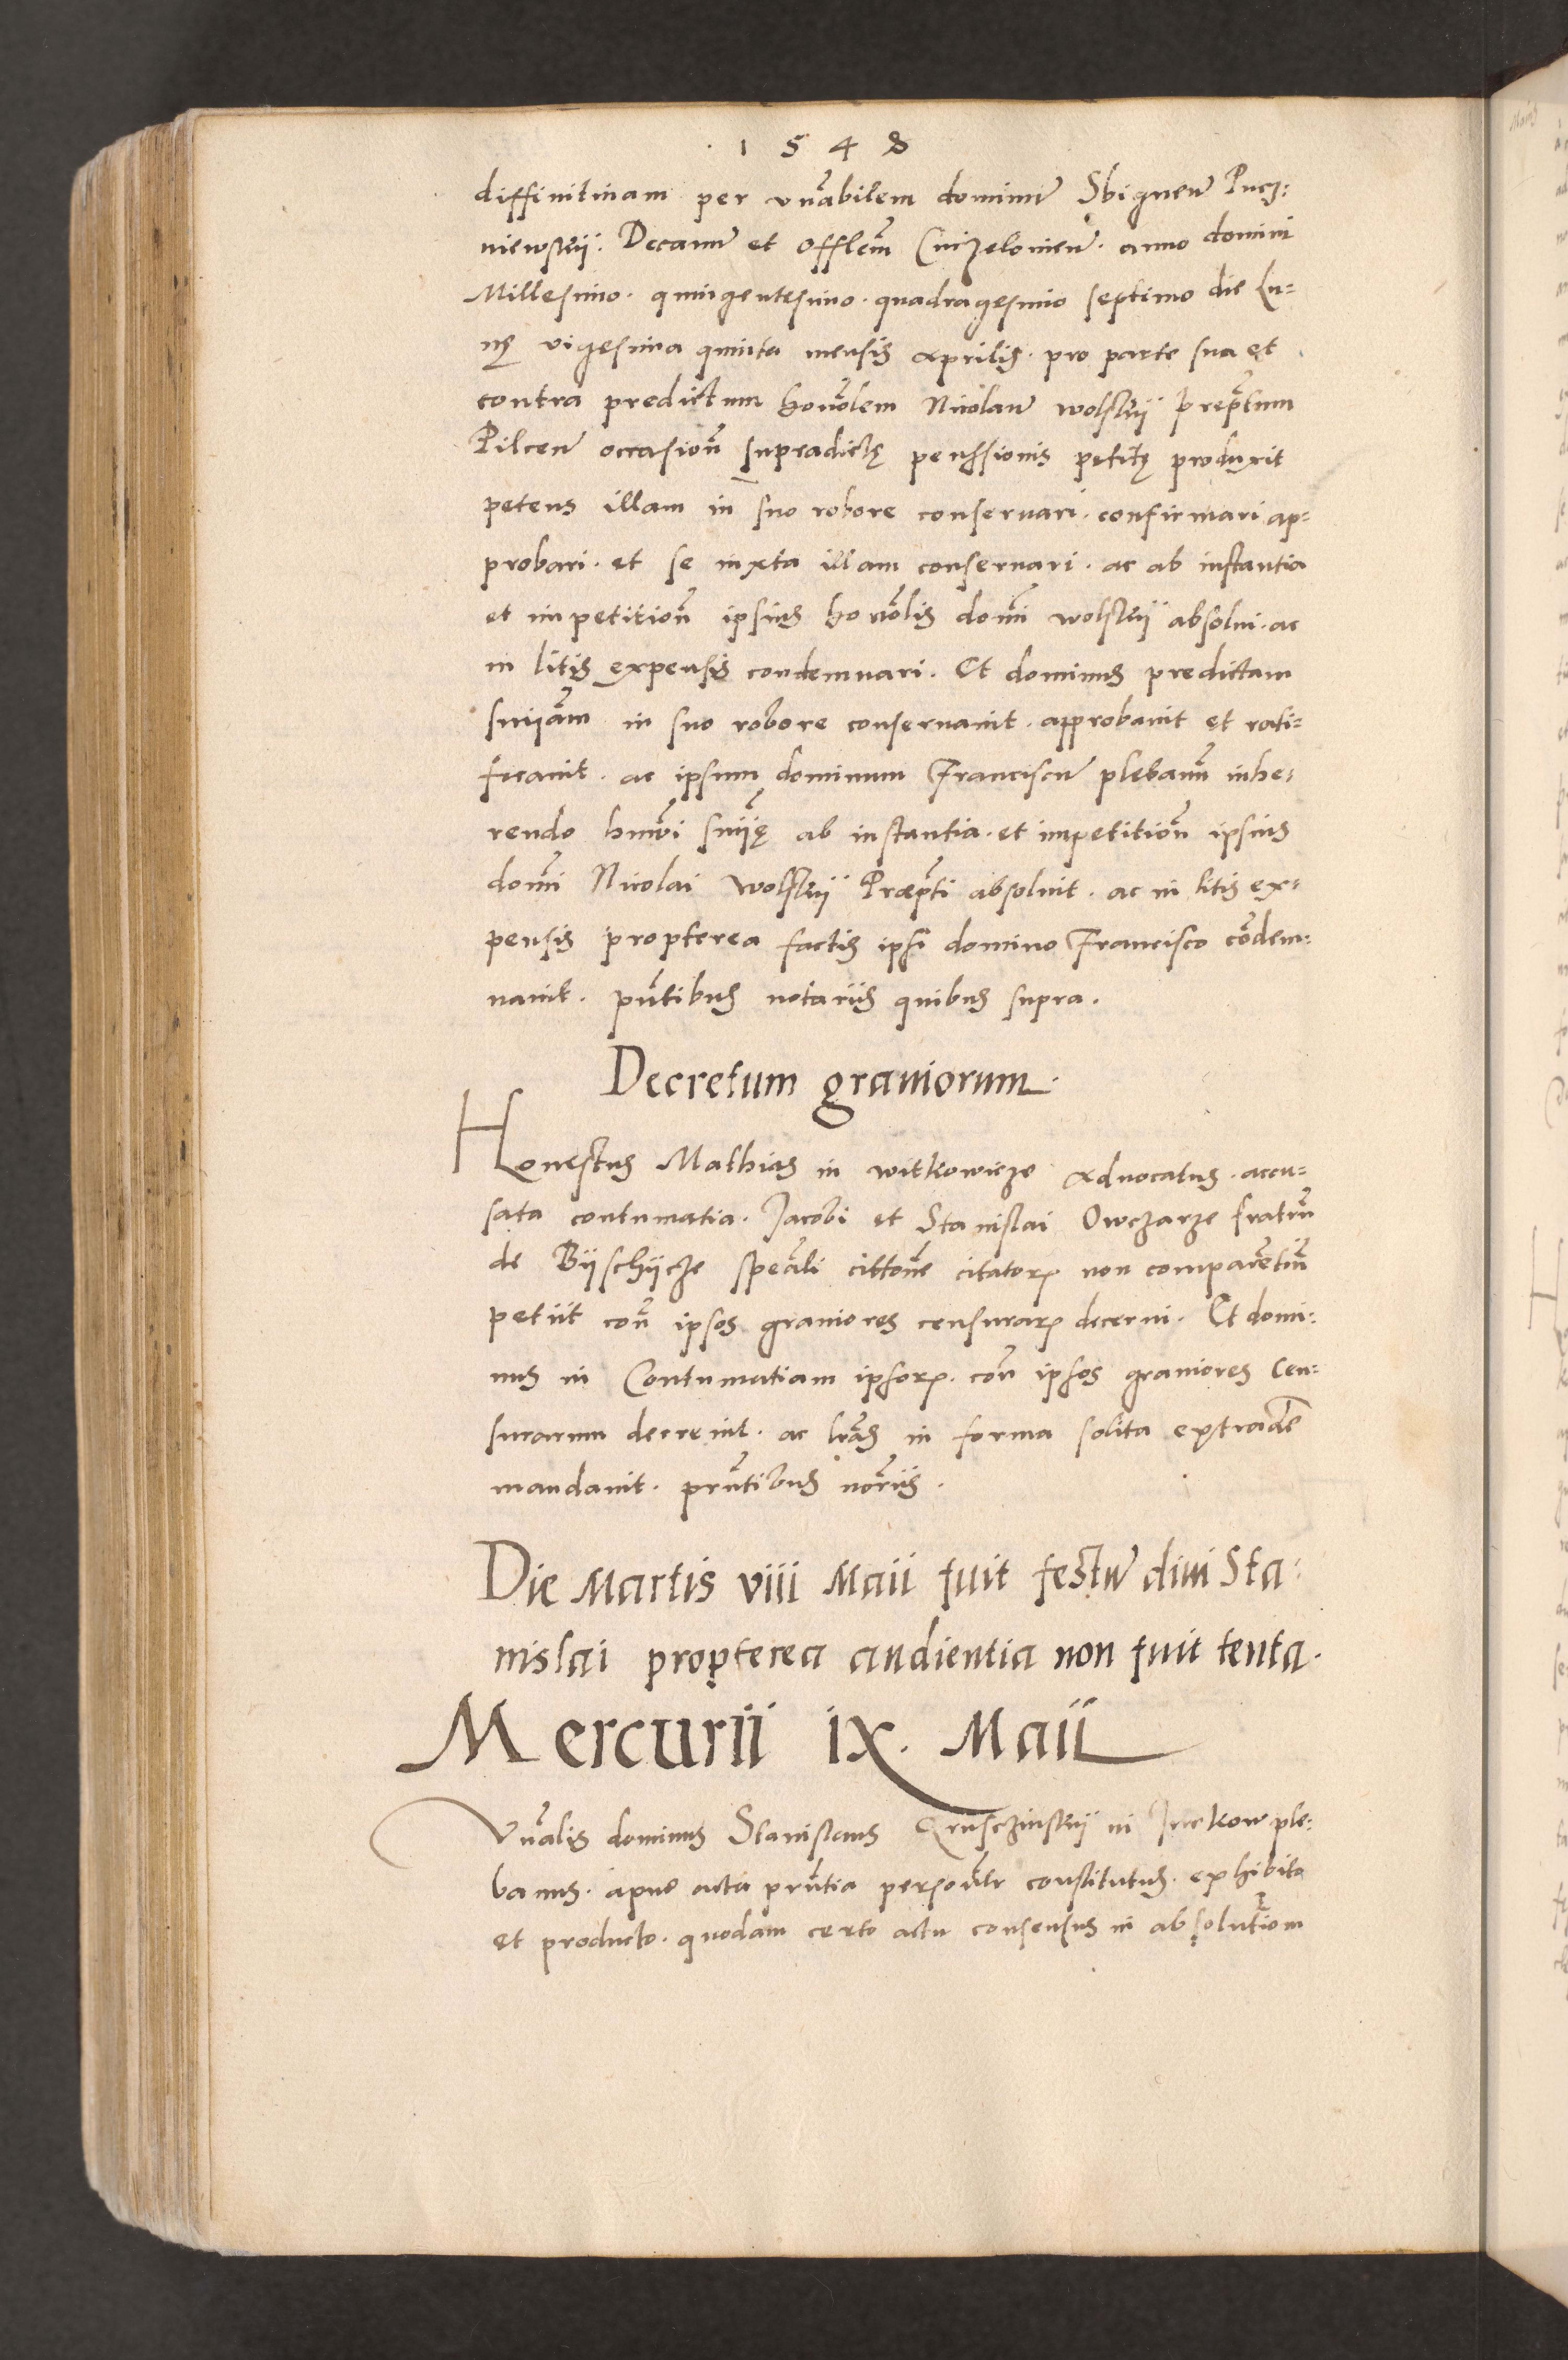 1548
diffinitiuam per vn̄abilem dominū Sbigneū Pucz-
niewskij. Decanū et offlēm Cuizeloviēn. anno domini
Millesimo. quingentesimo. quadragesimo septimo die Lu-
nę vigesima quinta mensis aprilis. pro parte sua et
contra predictum honōlem Nicolaū wolskij prepōtum
Pilceñ occasioñ supradictę penssionis petitę produxit
petens illam in suo robore conseruari. confirmari ap-
probari. et se iuxta illam conseruari. ac ab instantia
et impetitioñ ipsius honōlis domīni wolskij absolui. ac
in litis expensis condemnari. Et dominus predictam
sniiām in suo robore conseruauit. approbauit et rati-
ficauit. ac ipsum dominum Franciscū plebanū inhe-
rendo hmōi sniię ab instantia. et impetitioñ ipsius
domīni Nicolai wolskij Præpōti absoluit. ac in litis ex-
pensis propterea factis ipsi domino Francisco cōdem-
nauit. pn̄tibus notariis quibus supra.
Decretum grauiorum.
Honestus Mathias in witkowicze aduocatus. accu-
sata contumatia. Jacobi et Stanislai Owczarze fratrū
de Bijschijcze speāli cittōne citatorꝝ non comparētiū
petiit coñ ipsos grauiores censurarꝝ decerni. Et domi-
nus in Contumatiam ipsorꝝ. coñ ipsos grauiores Cen-
surarum decreuit. ac lr̄as in forma solita extradē
mandauit. prn̄tibus nōriis.
Die Martis viii Maii fuit festū diui Sta-
nislai propterea audientia non fuit tenta.
Mercurii ix. Maii
Vn̄alis dominus Stanislaus Kruschinskij in Jurkow ple-
banus. apud acta prn̄tia personlr̄ constitutus. exhibito
et producto. quodam certo actu consensus in absolutiom